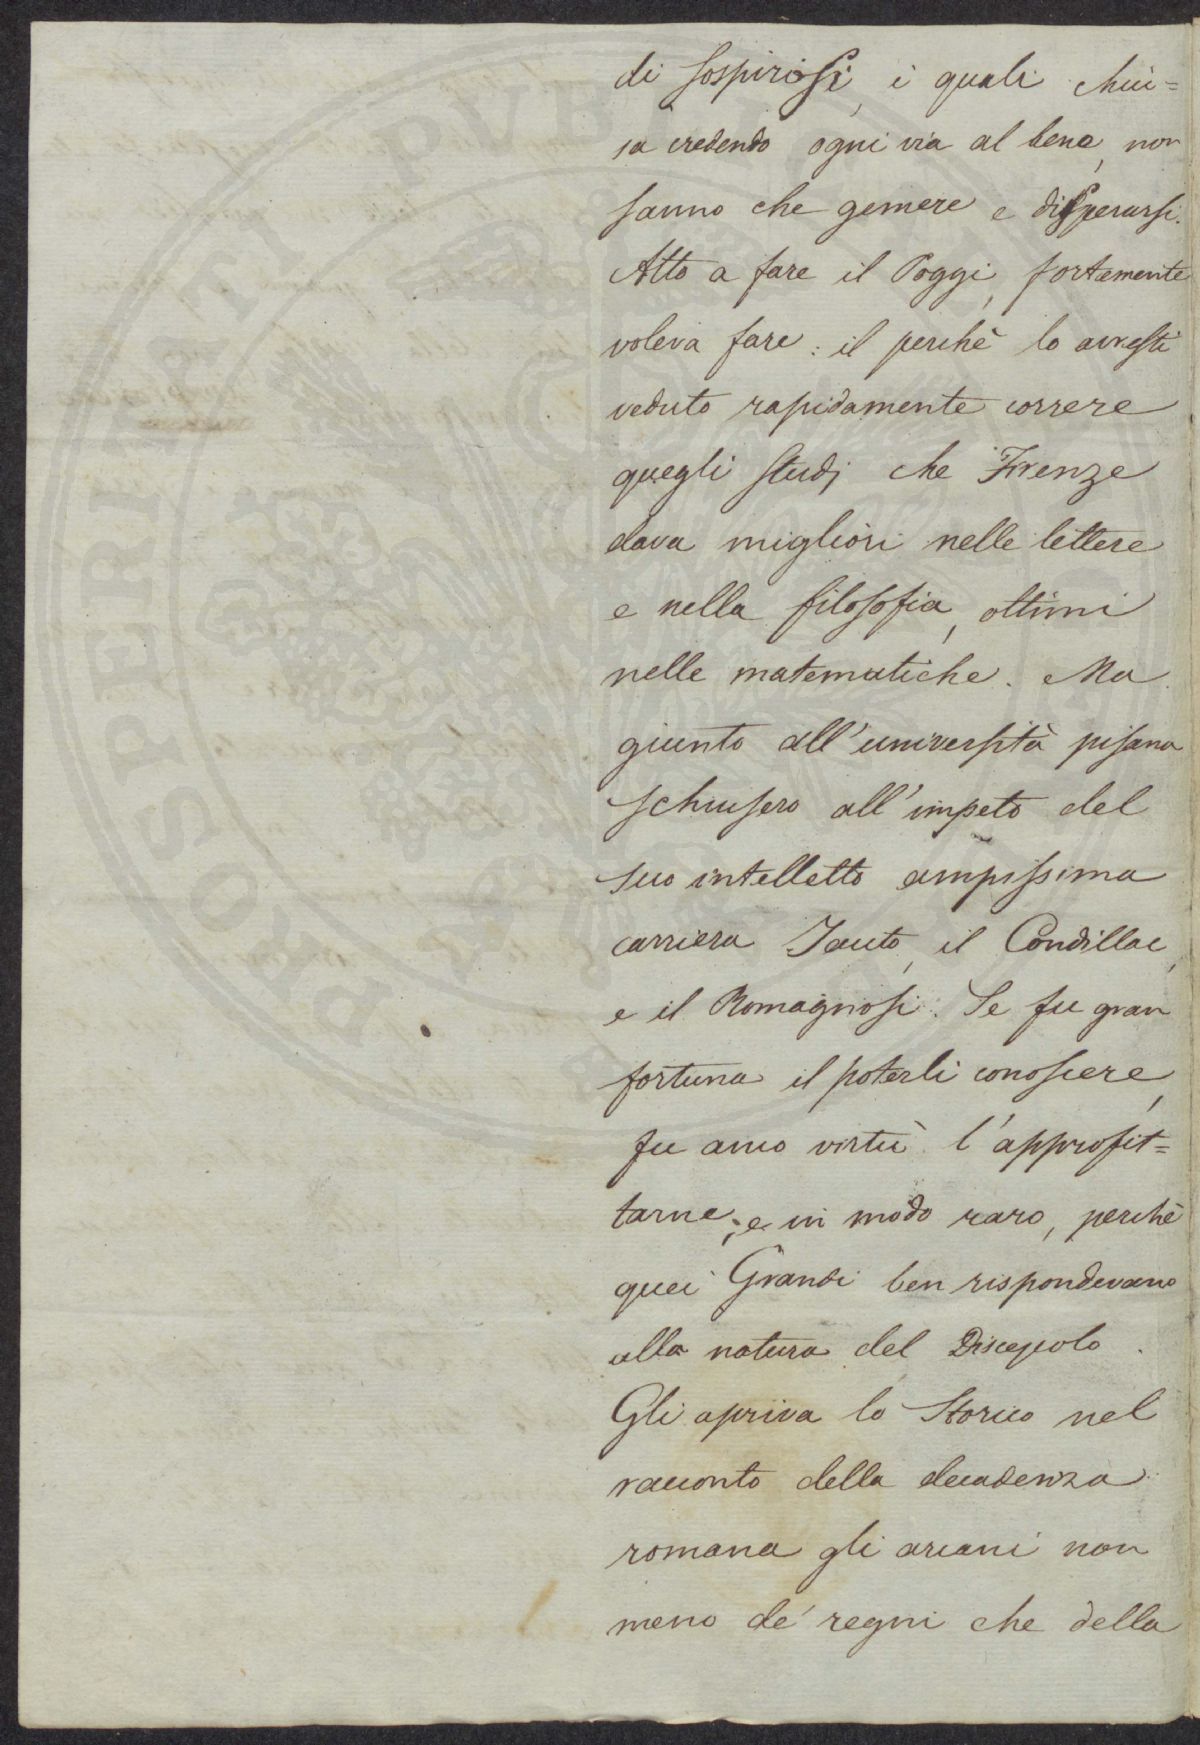 di sospirosi, i quali chiu=
sa credendo ogni via al bene, non
sanno che gemere e disperarsi.
Atto a fare il Poggi, fortemente
voleva fare: il perchè lo avresti
veduto rapidamente correre
quegli studj che Firenze
dava migliori nelle lettere
e nella filosofia, ottimi
nelle matematiche. Ma
giunto all'università pisana
schiusero all'impeto del
suo intelletto ampissima
carriera Tacito, il Condillac,
e il Romagnosi. Se fu gran
fortuna il poterli conoscere,
fu anco virtù l'approfit=
tarne; e in modo raro, perchè
quei Grandi ben rispondevano
alla natura del Discepolo.
Gli apriva lo Storico nel
racconto della decadenza
romana gli arcani non
meno de' regni che della